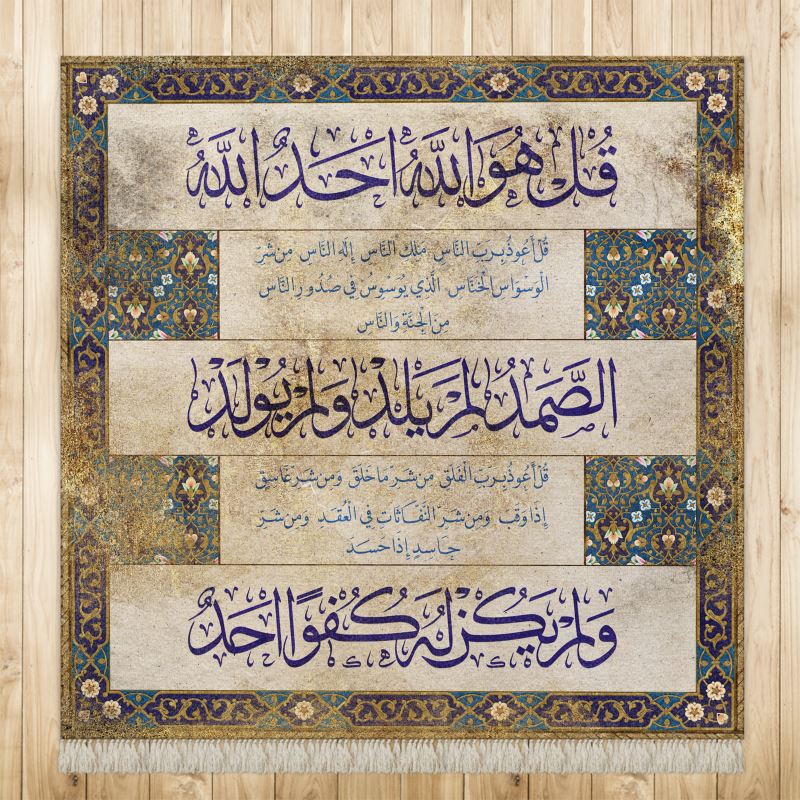 قُلْ هُوَ اللَّهُ أَحَدٌ اللَّهُ
قُلْ أَعُوذُ بِرَبِّ النَّاسِ مَلِكِ النَّاسِ إِلَهِ النَّاسِ مِن شَرِّ
الْوَسْوَاسِ الْخَنَّاسِ الَّذِي يُوَسْوِسُ فِي صُدُورِ النَّاسِ
مِنَ الْجِنَّةِ وَالنَّاسِ
الصَّمَدُ لَمْ يَلِدْ وَلَمْ يُولَدْ
قُلْ أَعُوذُ بِرَبِّ الْفَلَقِ مِن شَرِّ مَا خَلَقَ وَمِن شَرِّ غَاسِقٍ
إِذَا وَقَبَ وَمِن شَرِّ النَّفَّاثَاتِ فِي الْعُقَدِ وَمِن شَرِّ
حَاسِدٍ إِذَا حَسَدَ
وَلَمْ يَكُن لَهُ كُفُوًا أَحَدٌ